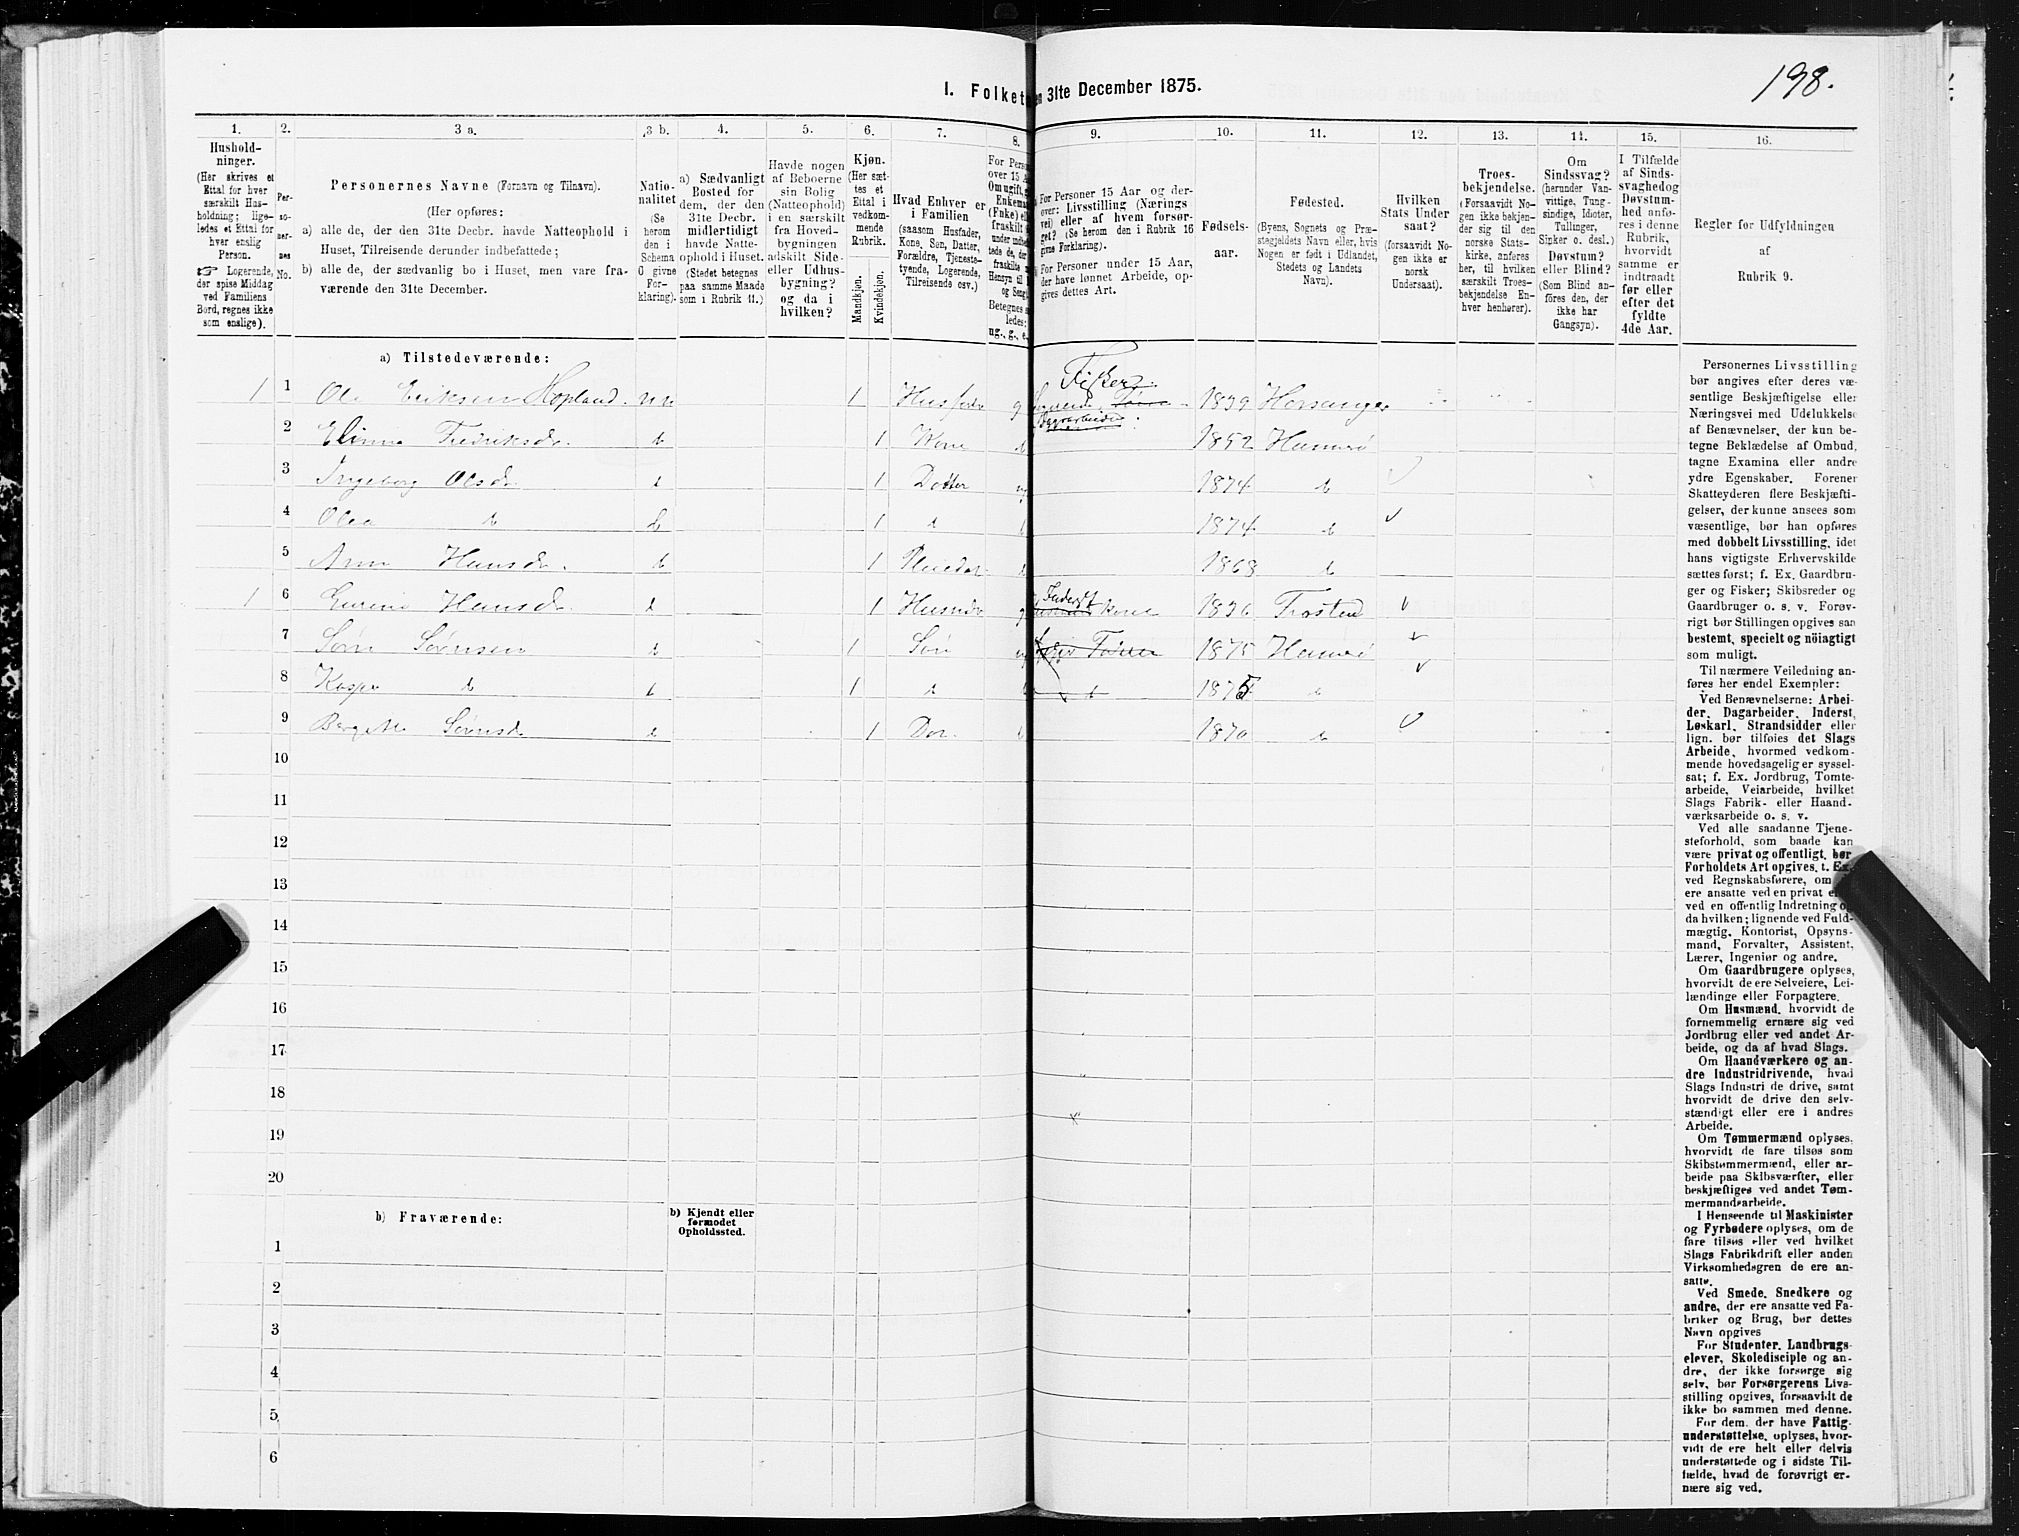 198.
I. Folket
en 31te December 1875.
1. 2. 3 a. 3 b. 4. 5. 6. 7. 8. 9. 10. 11. 12. 13. 14. 15. 16.
Hushold-
ninger.
(Her skrives et
Ettal for hver
særskilt Hus-
holdning; lige-
ledes et Ettal for
hver enslig
Person.
☞ Logerende,
der spise Middag
ved Familiens
Bord, regnes ikke
som enslige).
Per-
so-
ner-
nes
No.
Personernes Navne (Fornavn og Tilnavn).
(Her opføres:
a) alle de, der den 31te Decbr. havde Natteophold i
Huset, Tilreisende derunder indbefattede;
b) alle de, der sædvanlig bo i Huset, men vare fra-
værende den 31te December.
Natio-
nalitet
(Se
herom
den i
Schema
O givne
For-
klaring).
a) Sædvanligt
Bosted for
dem, der den
31te Decbr.
midlertidigt
havde Natte-
ophold i Huset.
(Stedet betegnes
paa samme Maade
som i Rubrik 11.)
Havde nogen
af Beboerne
sin Bolig
(Natteophold)
i en særskilt
fra Hoved-
bygningen
adskilt Side-
eller Udhus-
bygning?
og da i
hvilken?
Kjøn.
(Her sæt-
tes et
Ettal i
vedkom-
mende
Rubrik.
Mandkjøn.
Kvindekjøn.
Hvad Enhver er
i Familien
(saasom Husfader,
Kone, Søn, Datter,
Forældre, Tjeneste-
tyende, Logerende,
Tilreisende osv.)
For Perso
over 15 A
Om ugift,
Enkema
(Enke) el
fraskilt
under
tede de, de
fraskilte
Hensyn til
og Seng
Betegnes
ledes:
ug., g., e.
For Personer 15 Aar og der-
over: Livsstilling (Nærings
vei) eller af hvem forsør-
get? (Se herom den i Rubrik 16
givne Forklaring).
For Personer under 15 Aar,
der have lønnet Arbeide, op-
gives dettes Art.
Fødsels-
aar.
Fødested.
(Byens, Sognets og Præ-
stegjeldets Navn eller, hvis
Nogen er født i Udlandet,
Stedets og Landets
Navn).
Hvilken
Stats Under
saat?
(forsaavidt No-
gen ikke er
norsk
Undersaat).
Troes-
bekjendelse.
(Forsaavidt No-
gen ikke bekjen-
der sig til den
norske Stats-
kirke, anføres
her, til hvilken
særskilt Troes-
bekjendelse En-
hver henhører).
Om
Sindssvag?
(herunder Van-
vittige, Tung-
sindige, Idioter,
Tullinger,
Sinker o. desl.)
Døvstum?
eller Blind?
(Som Blind an-
føres den, der
ikke har
Gangsyn).
I Tilfælde
af Sinds-
svaghedog
Døvstum-
hed anfø-
res i denne
Rubrik,
hvorvidt
samme er
indtraadt
før eller
efter det
fyldte
4de Aar.
Regler for Udfyldningen
af
Rubrik 9.
a) Tilstedeværende:
Fisker
1 1 Ole Eriksen Hopland. nn 1 Husfader g 1839
Dagarbeider
2 Fredriksdr. 1 Kone 1852 Hameró
3 Ingeborg Olsdr 1 Datter ug 1874
4 1 1874
5 Hansdr. 1 Pleiedat. 1868
1 6 Hansdr. 1 g Kone 1836
7 Sørensen 1 Søn ug 1875 Hameró
8 1 1875
9 Sørensdr 1 Dat. 1870
10
11
12
13
14
15
16
17
18
19
20
b) Fraværende:
b) Kjendt eller
formodet
Opholdssted.
1
2
3
4
5
6
Personernes Livsstilling
bør angives efter deres væ-
sentlige Beskjæftigelse eller
Næringsvei med Udelukkelse
af Benævnelser, der kun be-
tegne Beklædelse af Ombud,
tagne Examina eller andre
ydre Egenskaber. Forener
Skatteyderen flere Beskjæfti-
gelser, der kunne ansees som
væsentlige, bør han opføres
med dobbelt Livsstilling, idet
hans vigtigste Erhvervskilde
sættes først; f. Ex. Gaardbru-
ger og Fisker; Skibsreder og
Gaardbruger o. s. v. Forøv-
rigt bør Stillingen opgives saa
bestemt, specielt og nöiagtigt
som muligt.
Til nærmere Veiledning an-
føres her endel Exempler:
Ved Benævnelserne: Arbei-
der, Dagarbeider, Inderst,
Løskarl, Strandsidder eller
lign. bør tilføies det Slags
Arbeide, hvormed vedkom-
mende hovedsagelig er syssel-
sat; f. Ex. Jordbrug, Tomte-
arbeide, Veiarbeide, hvilket
Slags Fabrik- eller Haand-
værksarbeide o. s. v.
Ved alle saadanne Tjene-
steforhold, som baade kan
være privat og offentligt, bør
Forholdets Art opgives, t. Ex.
ved Regnskabsførere, om
ere ansatte ved en privat
ved en offentlig Indretning
da hvilken; lignende ved Fuld-
mægtig, Kontorist, Opsyns-
mand, Forvalter, Assistent,
Lærer, Ingeniør og andre.
Om Gaardbrugere oplyses,
hvorvidt de ere Selveiere, Lei-
lændinge eller Forpagtere.
Om Husmænd, hvorvidt de
fornemmelig ernære sig ved
Jordbrug eller ved andet Ar-
beide, og da af hvad Slags.
Om Haandværkere og an-
dre Industridrivende, hvad
Slags Industri de drive, samt
hvorvidt de drive den selv-
stændigt eller ere i andres
Arbeide.
Om Tømmermænd oplyses,
hvorvidt de fare tilsøs som
Skibstømmermænd, eller ar-
beide paa Skibsværfter, eller
beskjæftiges ved andet Tøm-
mermandsarbeide.
I Henseende til Maskinister
og Fyrbødere oplyses, om de
fare tilsøs eller ved hvilket
Slags Fabrikdrift eller anden
Virksomhedsgren de ere an-
satte.
Ved Smede, Snedkere og
andre, der ere ansatte ved Fa-
briker og Brug, bør dettes
Navn opgives
For Studenter, Landbrugs-
elever, Skoledisciple og an-
dre, der ikke forsørge sig
selv, bør Forsørgerens Livs-
stilling opgives, forsaavidt de
ikke bo sammen med denne.
For dem, der have Fattig-
understøttelse, oplyses, hvor-
vidt de ere helt eller delvis
understøttede og i sidste Til-
fælde, hvad de forøvrigt er-
nære sig ved.